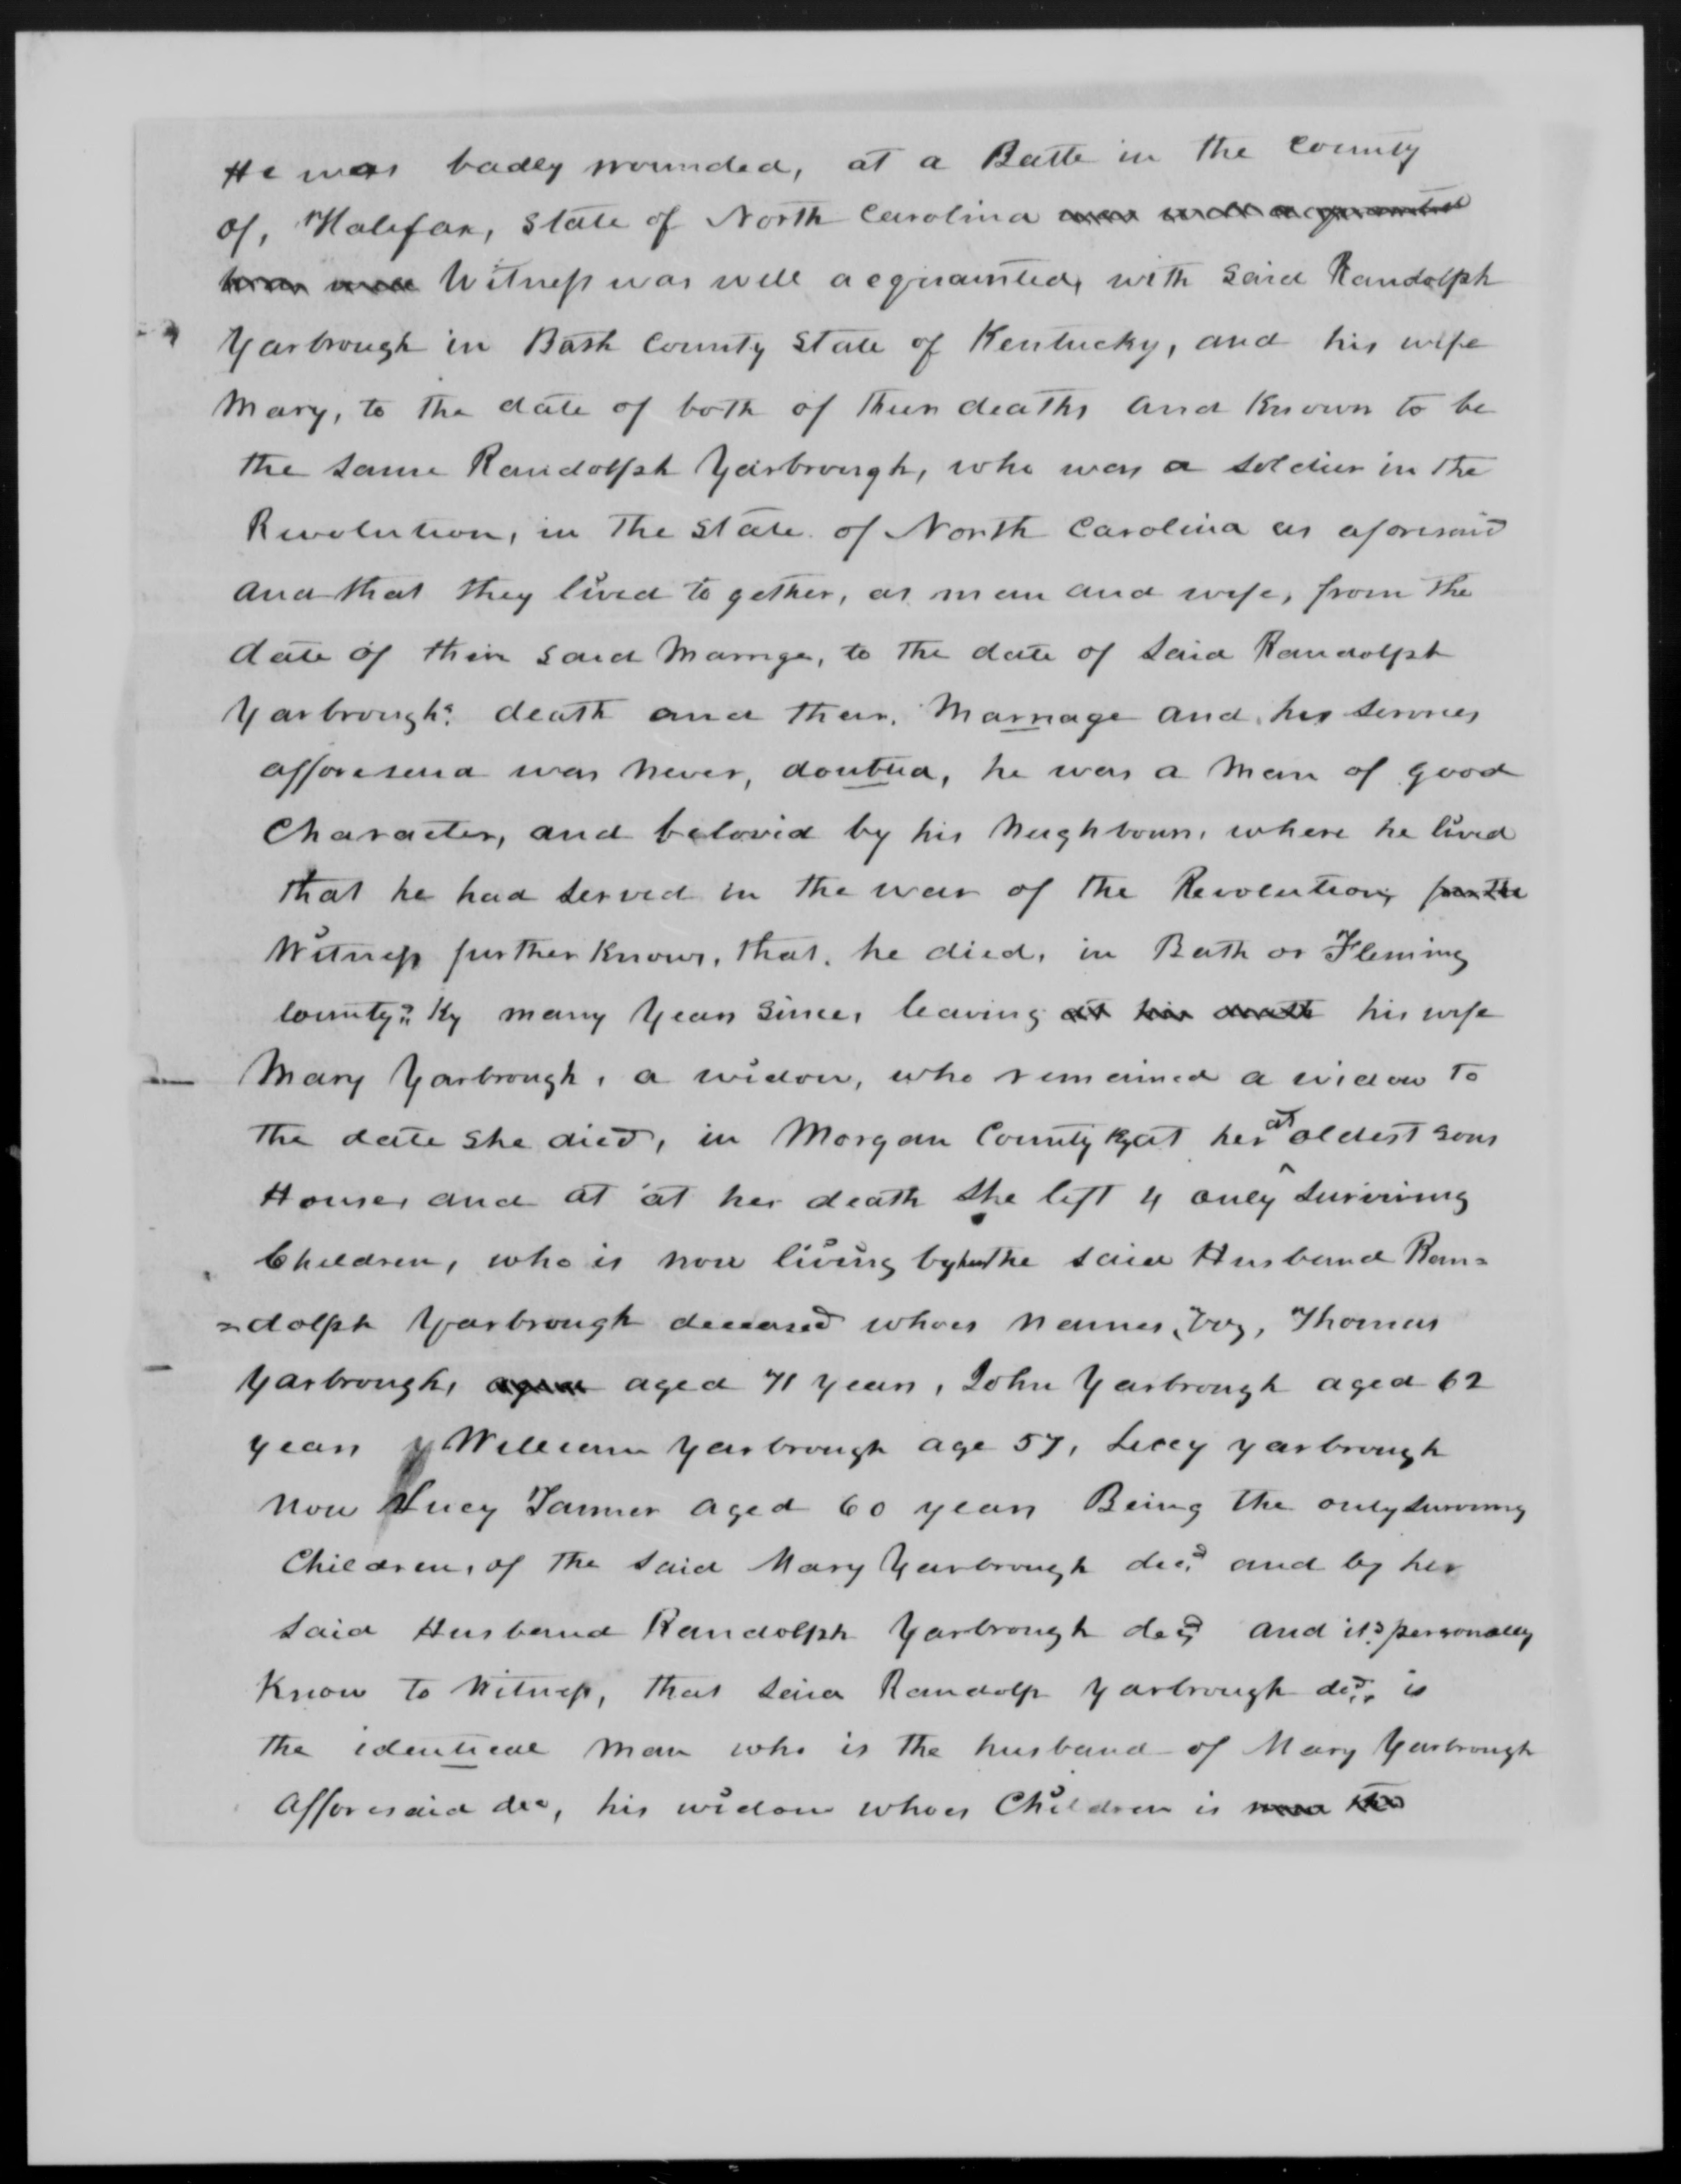 He was badly wounded, at a Batte in the County
of, Halifax, State of North Carolina was well acquainted
Witness was well acquainted, with said Randolph
Yarbrough in Bath County State of Kentucky, and his wife
Mary, to the date of both of their deaths and Known to be
the same Randolph Yarbrough, who was a soldier in the
Revolution, in the State of North Carolina as aforesaid
and that they lived together, as man and wife, from the
date of their said Marrige, to the date of said Randolph
Yarbrough's death and their Marriage and his servies
afforesaid was never, doubted, he was a man of good
Character, and beloved by his Neighbours, where he lived
that he had served in the war of the Revolution, for the
Witness further Knows, that, he died, in Bath or Fleming
County Ky many Years since, leaving at his death his wife
Mary Yarbrough, a widow, who remained a widow to
the date she died, in Morgan County Ky at her oldest sons
House, and at at her death she left 4 only surviving
Children, who is now living by the said Husband Ran=
=dolph Yarbrough deceased whoes names, viz, Thomas
Yarbrough, aged aged 71 years, John Yarbrough aged 62
years William Yarbrough age 57, Lucy yarbrough
now Lucy Tanner aged 60 years Being the only surviving
Children, of the said Mary Yarbrough decd and by her
said Husband Randolph Yarbrough decd and its personally
Know to Witness, that said Randolp Yarbrough decd is
the identical man who is the husband of Mary Yarbrough
Afforesaid dec, his widow whoes Children is